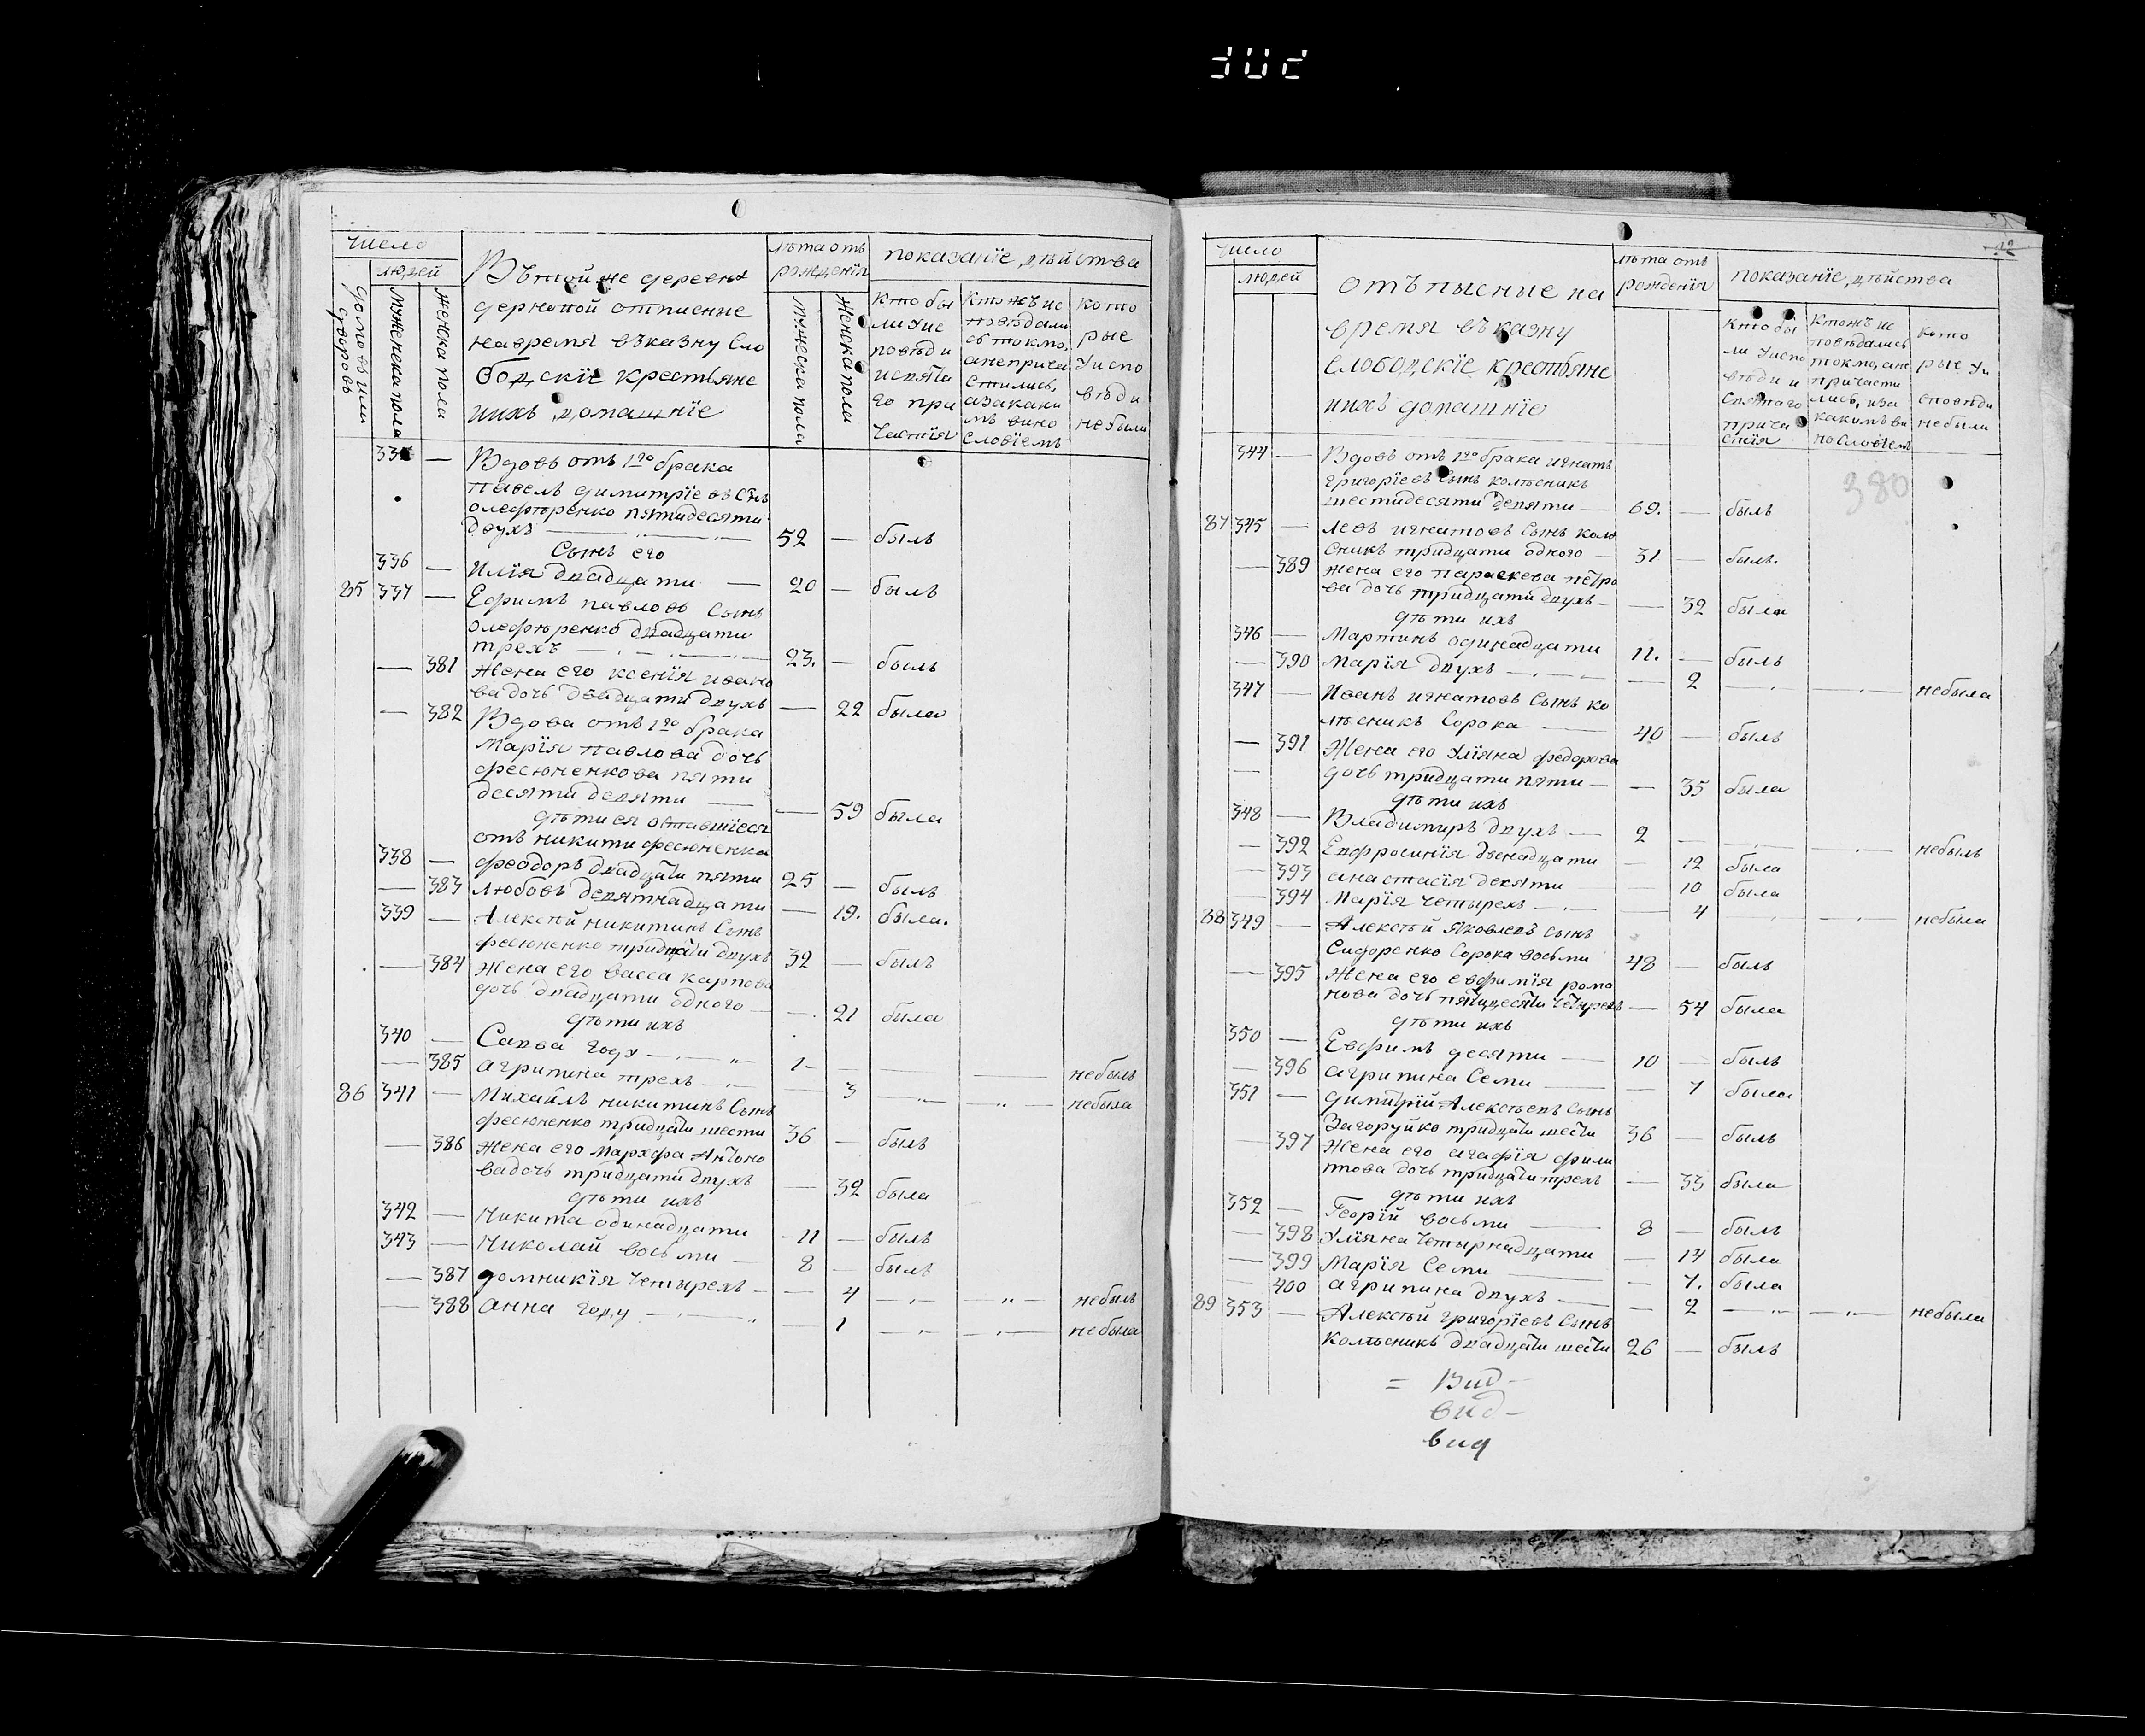 число
людей
домовъ или дворовъ
мужеска пола
женска пола
Въ той же деревне
дерновой отписние
на время въ казну Сло
бодскїе крестьяне
ихъ домашнїе
лѣта отъ
рожденїя
мужеска пола
женска пола
показанїе дѣйства
кто бы
ли у ис
повѣди
и свята
го при
частїя
кто жъ ис
повѣдали
сь токмо,
а не прича
стились,
а за каки
мъ вино
словїемъ
кото
рые
у испо
вѣди
не были
— Вдовъ отъ 1го брака
павелъ димитрїевъ Снъ
олефѣренко пятидесяти
двухъ — 52 — былъ
Сынъ его
336 — илїя двадцати — 20 — былъ
85 337 — Ефимъ павловъ Сынъ
олефѣренко двадцати
трехъ — 23. — былъ
— 381 жена его ксенїя ивано
ва дочь двадцати двухъ — 22 была
— 382 Вдова отъ 1го брака
марїя павлова дочь
фесюненкова пяти
десяти девяти — 59 была
дѣти ея оставшїеся
отъ никити фесюненка
338 — феодоръ двадцати пяти 25 — былъ
— 383 любовь девятнадцати — 19. была.
339 — Алексѣй никитинъ Сынъ
фесюненко тридцати двухъ 32 — былъ
— 384 жена его васса карпова
дочь двадцати одного — 21 была
дѣти ихъ
340 — Савва году — 1 — небылъ
— 385 агрипина трехъ — 3 — небыла
86 341 — Михайлъ никитинъ Сынъ
фесюненко тридцати шести 36 — былъ
— 386 жена его марфа Антоно
ва дочь тридцати двухъ — 32 была
дѣти ихъ
342 — Никита одинадцати — 11 — былъ
343 — Николай восьми — 8 — былъ
— 387 домникїя четырехъ — 4 — небылъ
— 388 анна году — 1 — небыла
число
людей
отъписние на
время въ казну
слободскїе крестьяне
ихъ домашнїе
лѣта отъ
рожденїя
показанїе дѣйства
кто бы
ли у испо
вѣди и
святаго
прича
стїя
кто жъ ис
повѣдались
токмо, а не
причасти
лись, и за
какимъ ви
нословїемъ
кото
рые у и
сповѣди
небыли
380
344 — Вдовъ отъ 1го брака игнатъ
григорїевъ Сынъ колѣсникъ
шестидесяти девяти — 69. — былъ
87 345 — левъ игнатовъ Сынъ колѣ
сникъ тридцати одного — 31 — былъ.
— 389 жена его параскева петро
ва дочь тридцати двухъ — 32 была
дѣти ихъ
346 — Мартинъ одинадцати 11. — былъ
— 390 марїя двухъ — 2 — небыла
347 — Иванъ игнатовъ Сынъ ко
лѣсникъ Сорока — 40 — былъ
— 391 Жена его Улїяна федорова
— дочь тридцати пяти — 35 была
дѣти ихъ
348 — Владимиръ двухъ — 2 — небылъ
— 392 Евфросинїя двенадцати — 12 была
— 393 анастасїя десяти — 10 была
— 394 Марїя четырехъ — 4 — небыла
88 349 — Алексѣй Яковлевъ сынъ
Сидоренко Сорока восьми 48 — былъ
— 395 Жена его евфимїя рома
нова дочь пятдесяти четырехъ — 54 была
дѣти ихъ
350 — Евфимъ десяти — 10 — былъ
— 396 агрипина Семи — 7 была
351 — димитрїй Алексѣевъ Сынъ
Загоруйко тридцати шести 36 — былъ
— 397 Жена его агафїя фили
пова дочь тридцати трехъ — 33 была
дѣти ихъ
352 — Георїй восьми — 8 — былъ
— 398 Улїяна Четырнадцати — 14 была
— 399 Марїя Семи — 7. была
— 400 агрипина двухъ — 2 — небыла
89 353 — Алексѣй григорїевъ Сынъ
Колѣсникъ двадцати шести 26 — былъ
= Вид —
вид —
вид